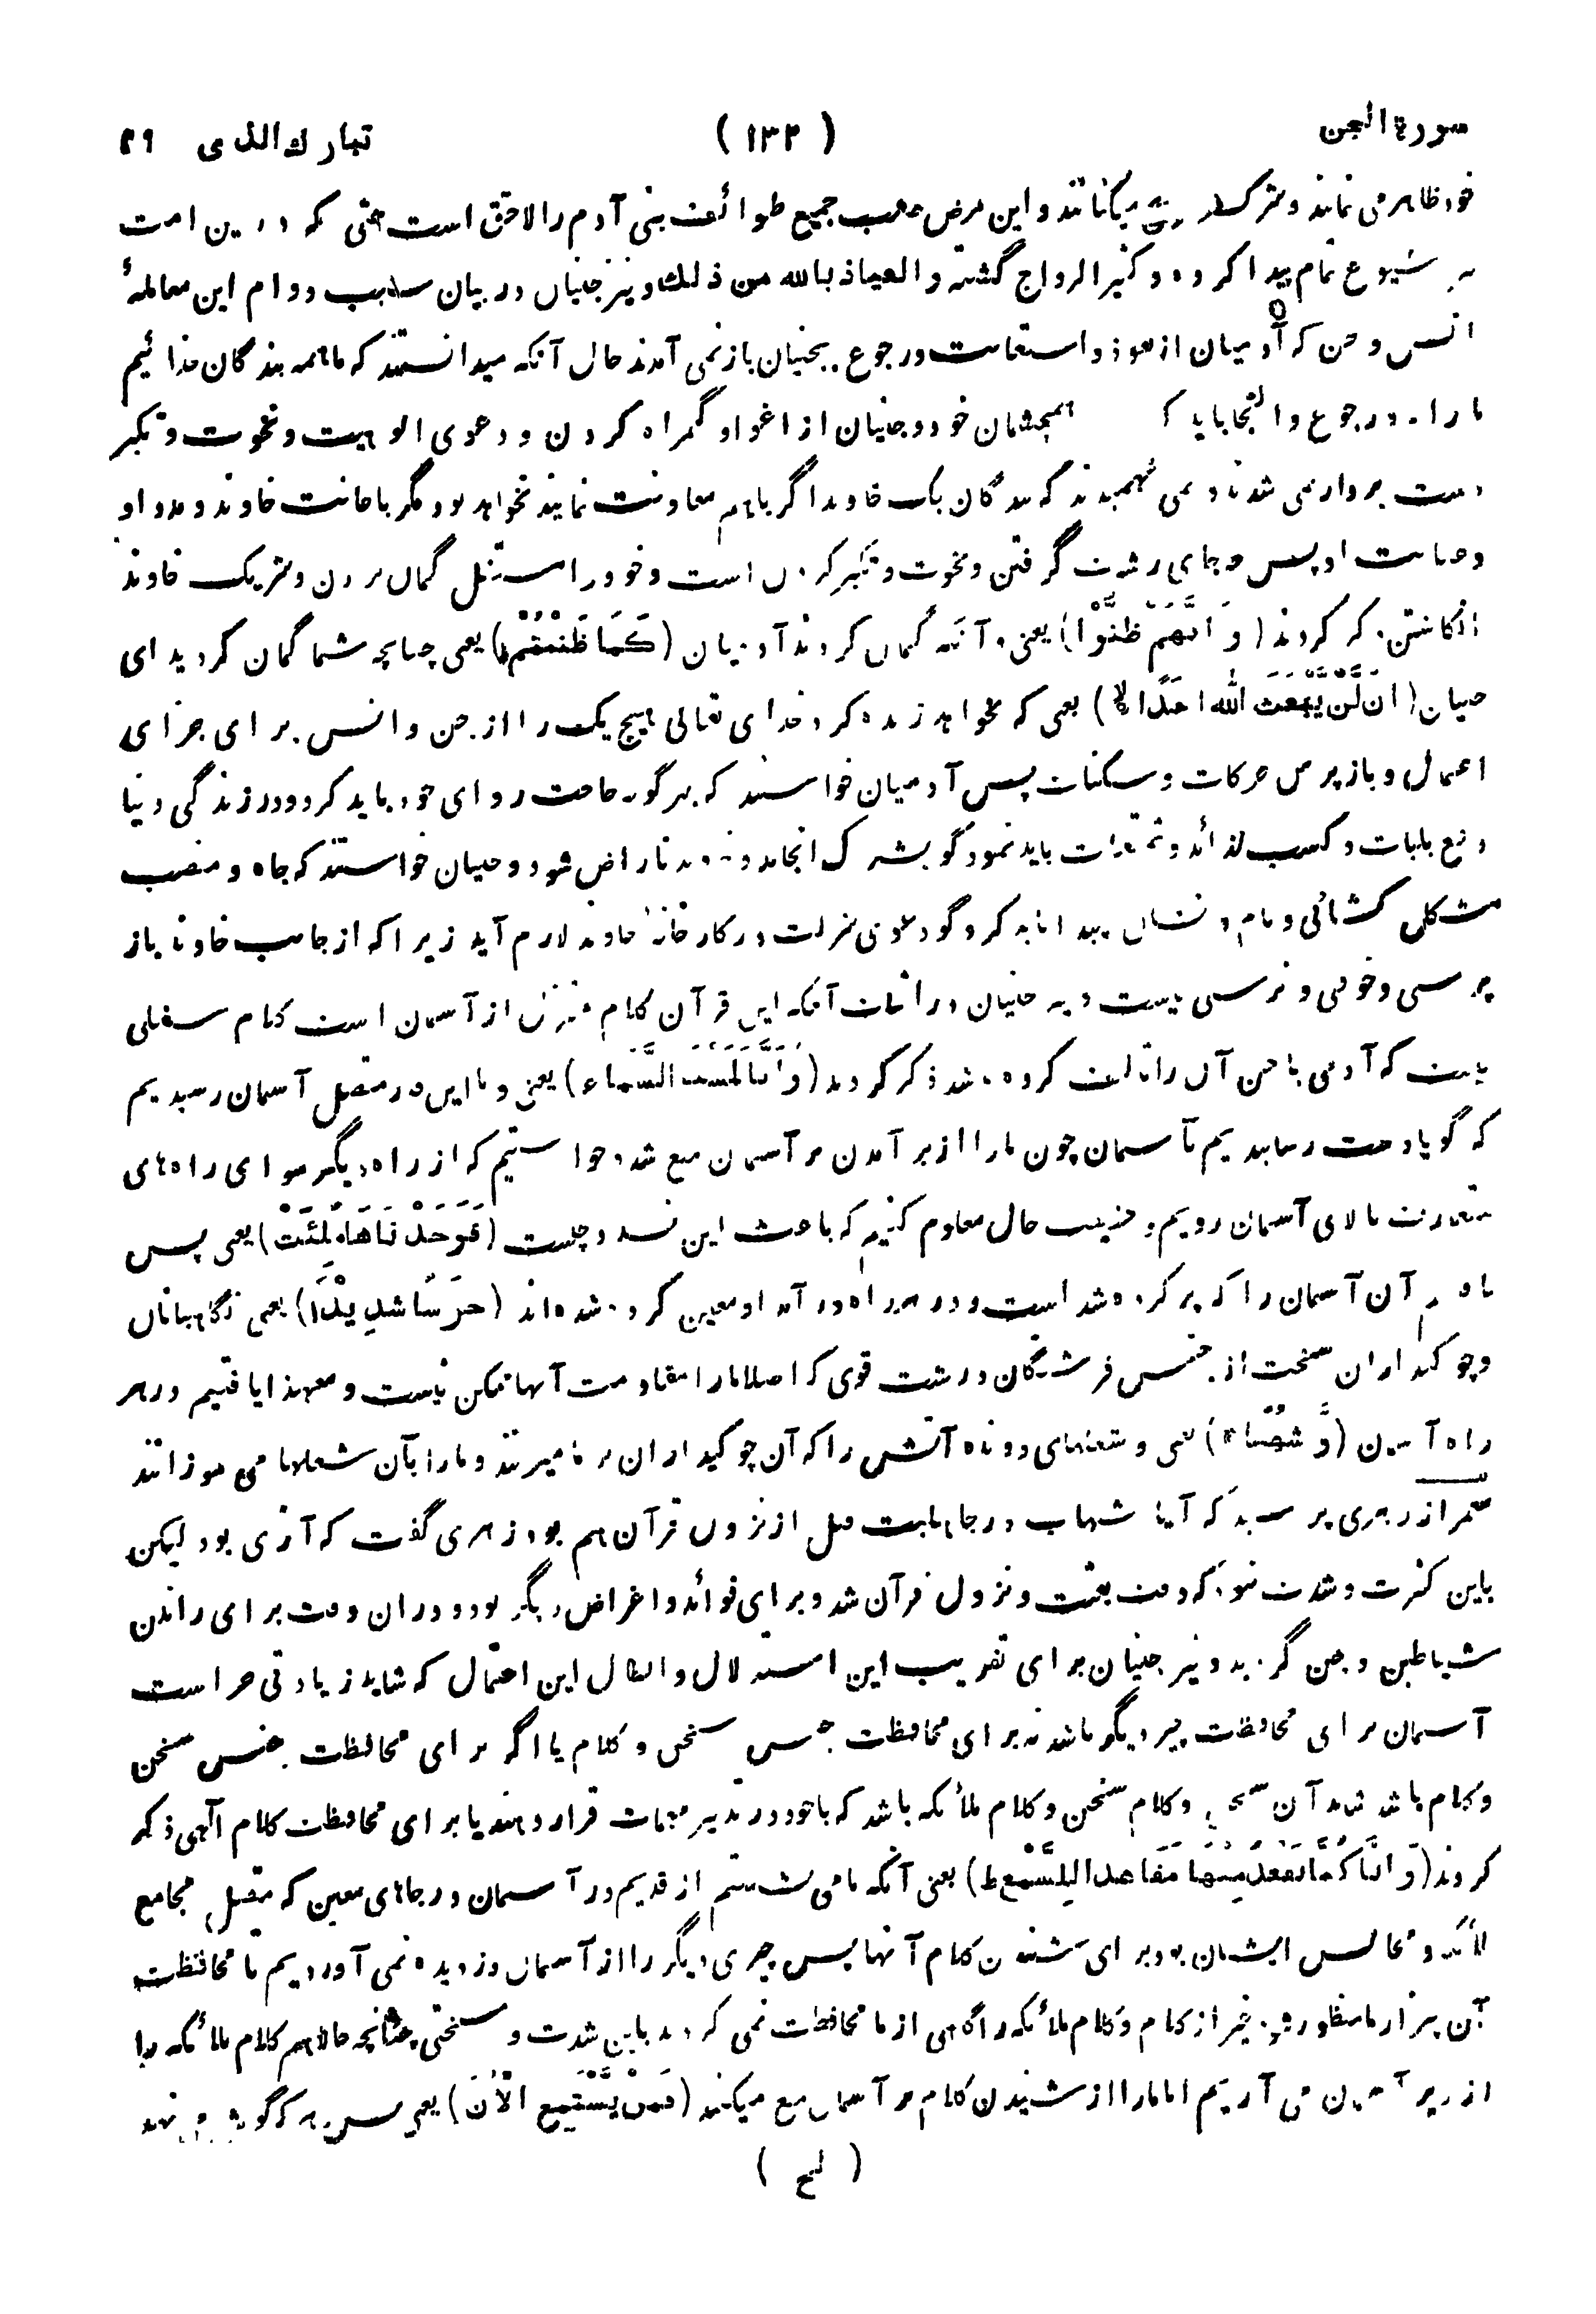 سورة الجن (۱۳۲) تبارك الذى ۲۹
خود ظاهر می نمایند و شرک میکنانند و این مرض عجیب جمیع طوائف بنی آدم را لاحق است حتی که درین امت
شیوع تمام پیدا کرده و کثیر الرواج گشته والعیاذ بالله من ذلك و نیز جنیان در بیان سبب دوام این معاملهٔ
انس و جن که آدمیان از تعوذ و استعانت و رجوع بجنیان باز نمی آمدند حال آنکه میدانستند که ما همه بندگان خدائیم
ما را ورجوع والتجا باید همچشمان خود و جنیان از اغوا و گمراه کردن و دعوی الوهیت و نخوت و تکبر
دست بردار نمی شدند و نمی فهمیدند که بندگان یک خاوند اگر باهم معاونت نمایند نخواهد بود مگر باعانت خاوند و مدد او
وعنایت او پس چه جای رشوت گرفتن و نخوت و تکبر کردن است و خود را مستقل گمان بردن و شریک خاوند
انگاشتن ذکر کردند (وَاَنَّهُمْ ظَنُّوْا) یعنی و آنکه گمان کردند آدمیان (كَمَا ظَنَنْتُمْ) یعنی چنانچه شما گمان کردید ای
جنیان (اَنْ لَّنْ يَّبْعَثَ اللّٰهُ اَحَدًا) یعنی که نخواهد زنده کرد خدای تعالی هیچ یک را از جن و انس برای جزای
اعمال و بازپرس حرکات و سکنات پس آدمیان خواستند که بهرگونه حاجت روای خود باید کرد و در زندگی دنیا
دفع بلیات و کسب لذائذ و تمتعات باید نمود گو بشرک انجامد و خاوند ناراض شود و جنیان خواستند که جاه و منصب
مشکل کشائی و نام و نشان پیدا باید کرد گو دعوی منزلت در کارخانهٔ خاوند لازم آید زیراکه از جانب خاوند باز
پرسی و خوفی و ترسی نیست و نیز جنیان در اثبات آنکه این قرآن کلام منزل از آسمان است کلام سفلی
نیست که آدمی یا جن آن را تالیف کرده باشد ذکر کردند (وَاَنَّا لَمَسْنَا السَّمَآءَ) یعنی و ما این قدر متصل آسمان رسیدیم
که گویا دست رسانیدیم تا آسمان چون ما را از برآمدن بر آسمان منع شد خواستیم که از راه دیگر سوای راه‌های
متعارف بالای آسمان رویم و حقیقت حال معلوم کنیم که باعث این چیست (فَوَجَدْنَاهَا مُلِئَتْ) یعنی پس
یافتیم آن آسمان را که پر کرده شده است و در هر راه درآمد او معین کرده شده‌اند (حَرَسًا شَدِيْدًا) یعنی نگاهبانان
و چوکیداران سخت از جنس فرشتگان درشت قوی که اصلا ما را مقاومت آنها ممکن نیست و معهذا یافتیم در هر
راه آسمان (وَّشُهُبًا) یعنی و شعلهای دونده آتش را که آن چوکیداران بر ما میزنند و ما را بآن شعلها می سوزانند
معمر از زهری پرسید که آیا شهاب در جاهلیت قبل از نزول قرآن هم بود زهری گفت که آری بود لیکن
باین کثرت و شدت نبود که وقت بعثت و نزول قرآن شد و برای فوائد و اغراض دیگر بود و دران وقت برای راندن
شیاطین و جن گردید و نیز جنیان برای تقریب این استدلال و ابطال این احتمال که شاید زیادتی حراست
آسمان برای محافظت چیز دیگر باشد نه برای محافظت جنس سخن و کلام یا اگر برای محافظت جنس سخن
و کلام باشد شاید آن سخن و کلام سخن و کلام ملائکه باشد که باخود در تدبیر مهمات قرار دهند یا برای محافظت کلام آلهی ذکر
کردند (وَاَنَّا كُنَّا نَقْعُدُ مِنْهَا مَقَاعِدَ لِلسَّمْعِ ط) یعنی آنکه ما می نشستیم از قدیم در آسمان در جاهای معین که متصل مجامع
ملائکه و مجالس ایشان بود برای شنیدن کلام آنها پس چیزی دیگر را از آسمان دزدیده نمی آوردیم تا محافظت
آن چیز از ما منظور غیر از کلام و کلام ملائکه را گاهی از ما محافظت نمی کردند باین شدت و سختی چنانچه حالا هم کلام ملائکه را
از زیر آسمان می آریم اما ما را از شنیدن کلام بر آسمان منع میکنند (فَمَنْ يَّسْتَمِعِ الْاٰنَ) یعنی پس هر که گوش